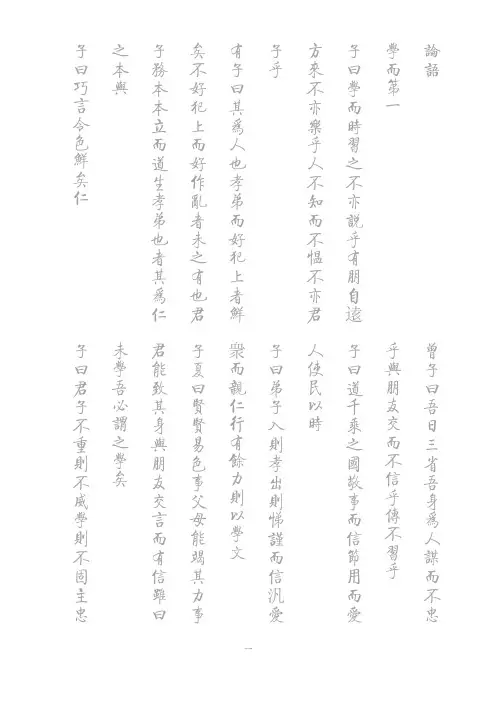 論語
學而第一
子曰學而時習之不亦說乎有朋自遠
方來不亦樂乎人不知而不慍不亦君
子乎
有子曰其爲人也孝弟而好犯上者鮮
矣不好犯上而好作亂者未之有也君
子務本本立而道生孝弟也者其爲仁
之本與
子曰巧言令色鮮矣仁
曾子曰吾日三省吾身爲人謀而不忠
乎與朋友交而不信乎傳不習乎
子曰道千乘之國敬事而信節用而愛
人使民以時
子曰弟子入則孝出則悌謹而信汎愛
衆而親仁行有餘力則以學文
子夏曰賢賢易色事父母能竭其力事
君能致其身與朋友交言而有信雖曰
未學吾必謂之學矣
子曰君子不重則不威學則不固主忠
一